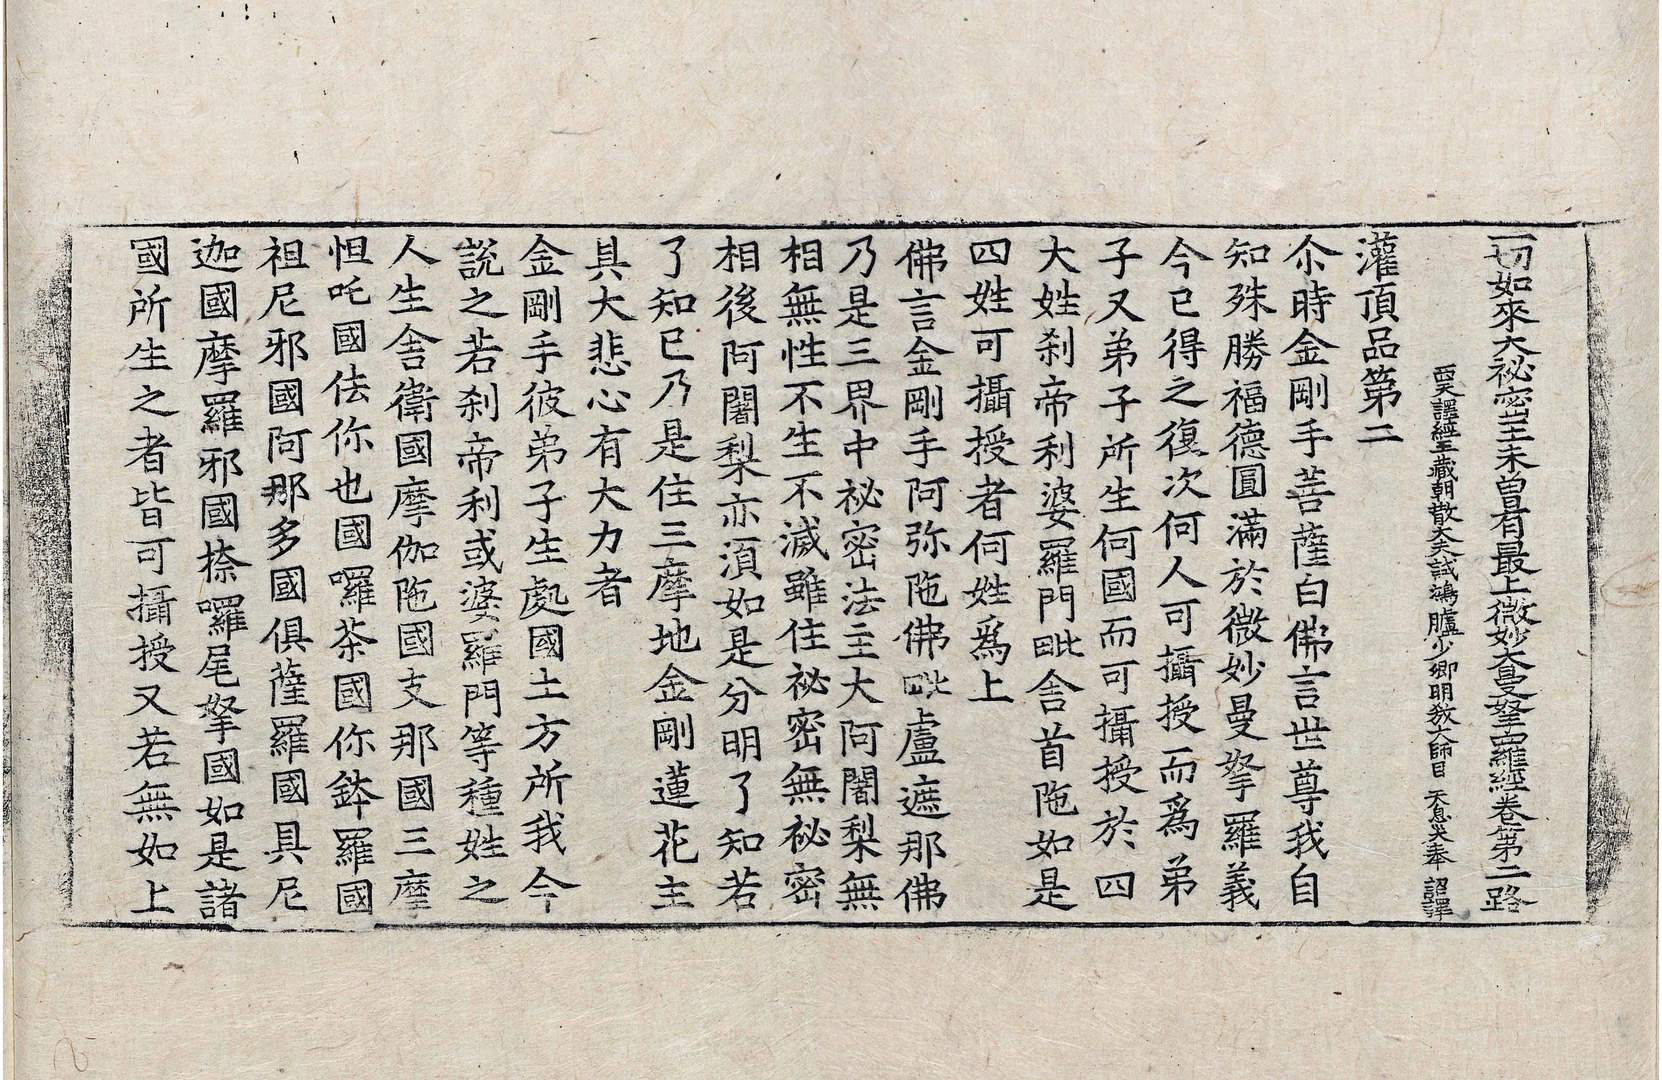 一切如來大祕密王未曾有最上微妙大曼拏羅經卷第二 路
西天譯經三藏朝散大夫試鴻臚少卿明教大師臣 天息災奉 詔譯
灌頂品第二
尒時金剛手菩薩白佛言世尊我自
知殊勝福德圓滿於微妙曼拏羅義
今已得之復次何人可攝授而爲弟
子又弟子所生何國而可攝授於四
大姓刹帝利婆羅門毗舍首陁如是
四姓可攝授者何姓爲上
佛言金剛手阿弥陁佛毗盧遮那佛
乃是三界中祕密法主大阿闍梨無
相無性不生不滅雖住祕密無祕密
相後阿闍梨亦須如是分明了知若
了知已乃是住三摩地金剛蓮花主
具大悲心有大力者
金剛手彼弟子生處國土方所我今
說之若刹帝利或婆羅門等種姓之
人生舍衛國摩伽陁國支那國三摩
怛吒國佉你也國囉茶國你鉢羅國
祖尼邪國阿那多國俱薩羅國具尼
迦國摩羅邪國捺囉尾拏國如是諸
國所生之者皆可攝授又若無如上